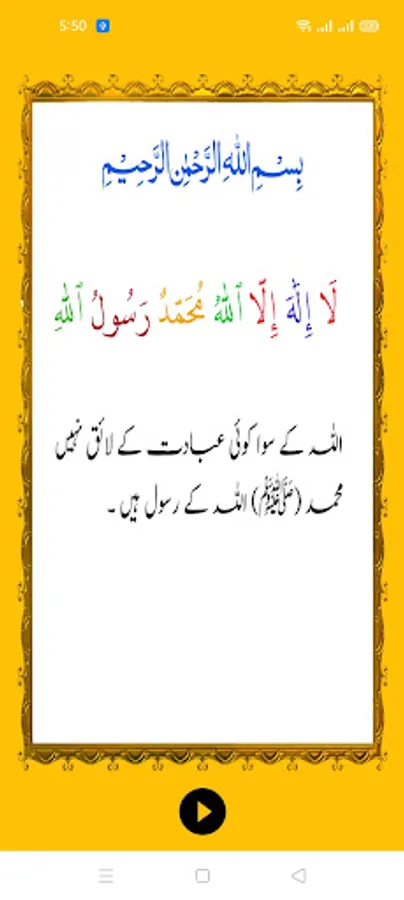 5:50
بِسْمِ اللهِ الرَّحْمٰنِ الرَّحِيْمِ
لَا إِلٰهَ إِلَّا ٱللهُ مُحَمَّدٌ رَسُولُ ٱللهِ
اللہ کے سوا کوئی عبادت کے لائق نہیں
محمد (ﷺ) اللہ کے رسول ہیں ۔